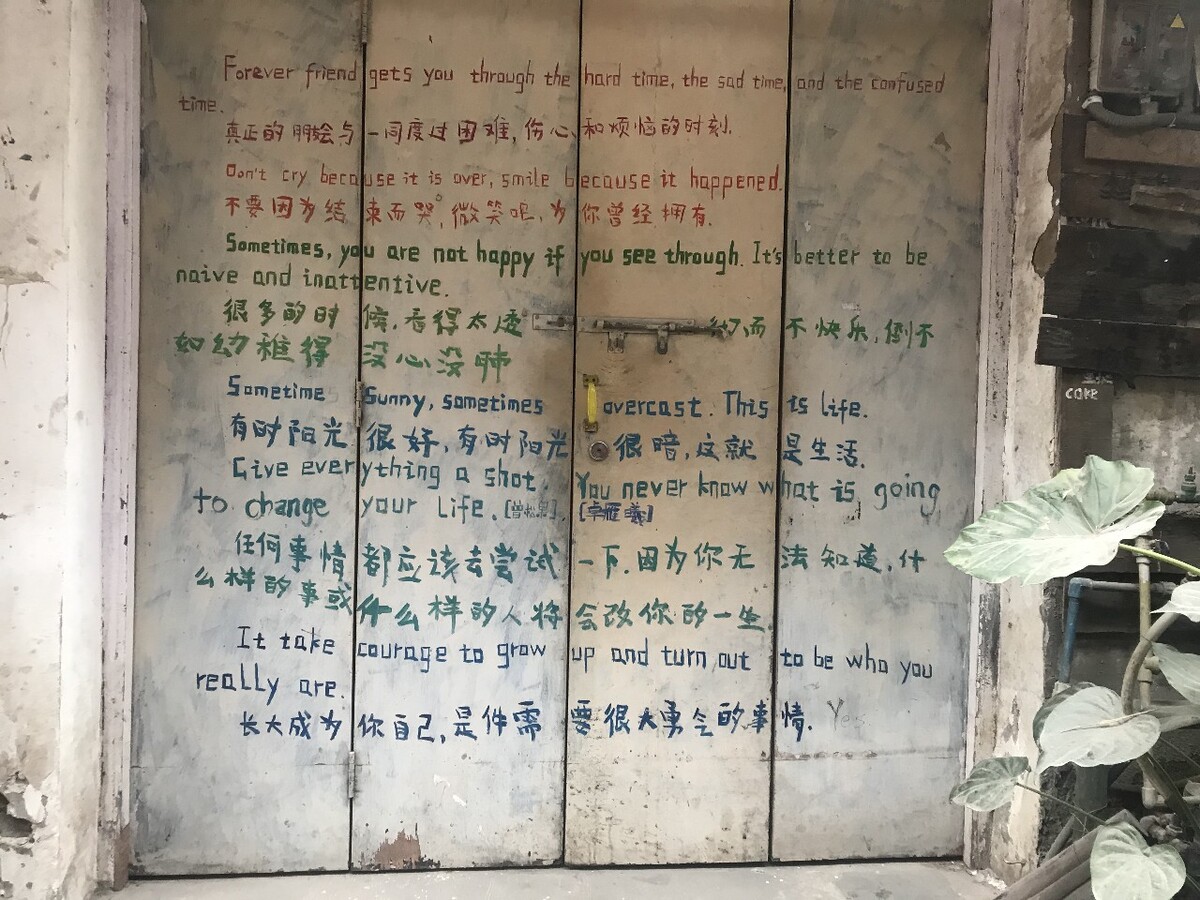 Forever friend gets you through the hard time, the sad time, and the confused
time.
真正的朋会与一同度过困难,伤心、和烦恼的时刻.
Don't cry because it is over, smile because it happened.
不要因为结束而哭,微笑呢,为你曾经拥有.
Sometimes, you are not happy if you see through. It's better to be
naive and inattentive.
很多的时候,看得太透 而不快乐,倒不
如幼稚得没心没肺
Sometime Sunny, sometimes overcast. This is life.
有时阳光很好,有时阳光很暗,这就是生活.
Give everything a shot. You never know what is going
to change your life.
任何事情都应该去尝试一下.因为你无法知道,什
么样的事或什么样的人将会改你的一生.
It take courage to grow up and turn out to be who you
really are.
长大成为你自己,是件需要很大勇气的事情.
cake